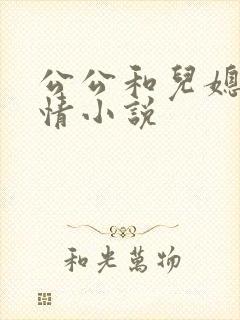 公公和兒媳
情小說
和光萬物